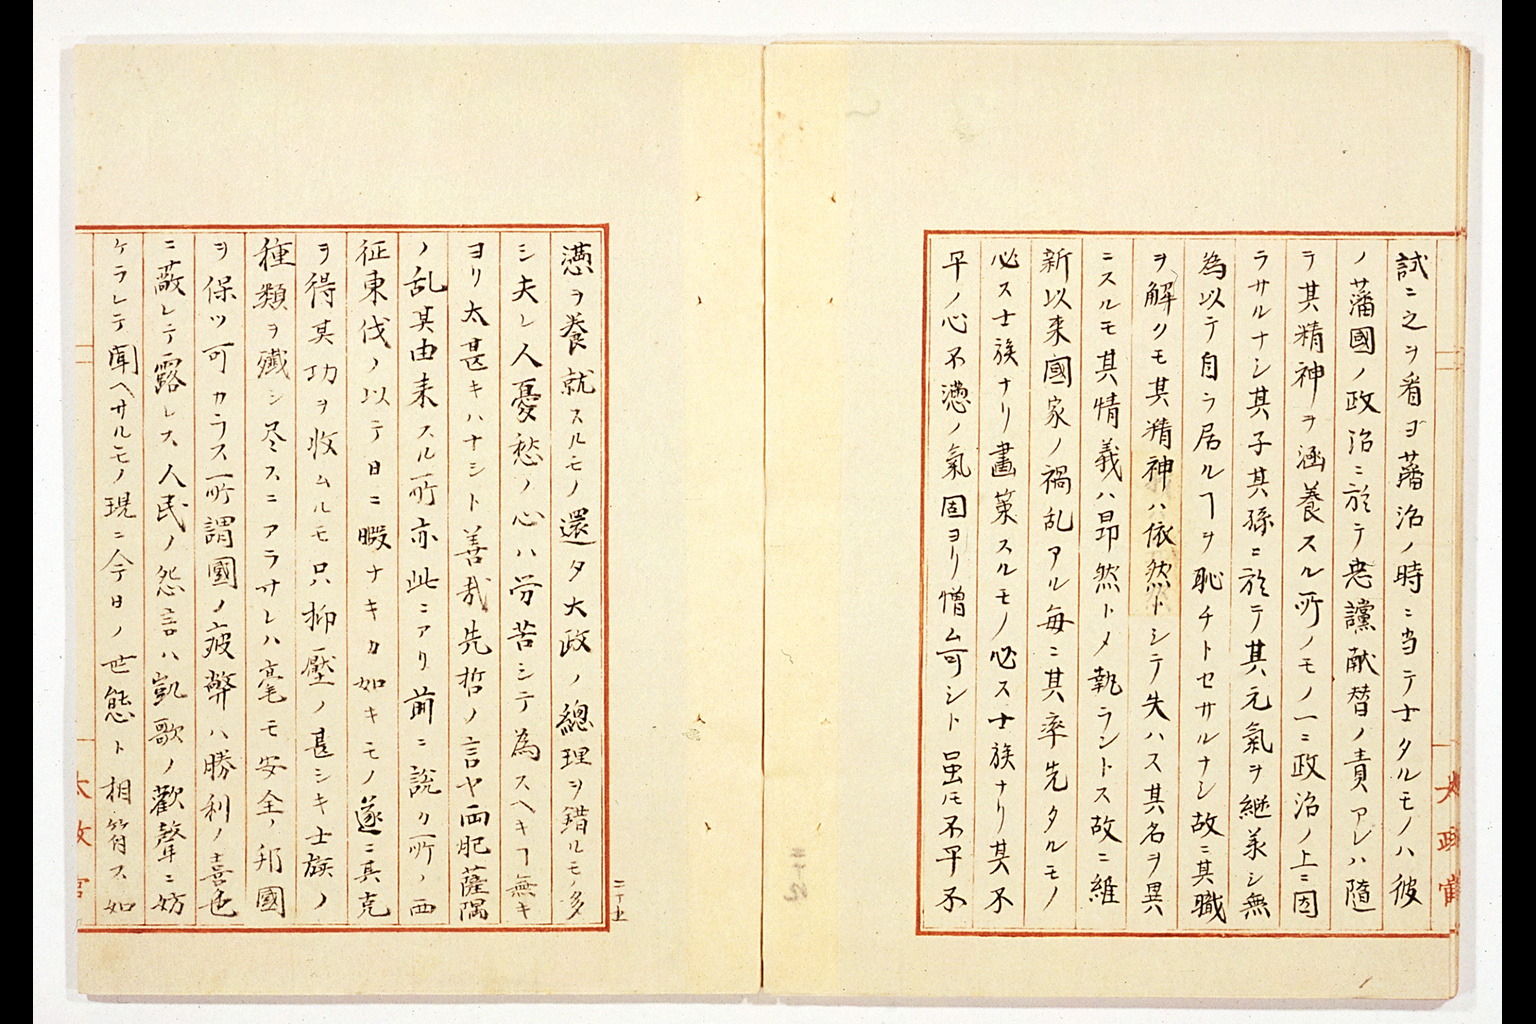 試ニ之ヲ看ヨ藩治ノ時ニ当テ士タルモノハ彼
ノ藩國ノ政治ニ於テ忠讜献替ノ責アレハ隨
テ其精神ヲ涵養スル所ノモノ一ニ政治ノ上ニ固
ラサルナシ其子其孫ニ於テ其元氣ヲ継承シ無
為以テ自ラ居ルヿヲ恥チトセサルナシ故ニ其職
ヲ解クモ其精神ハ依然トシテ失ハス其名ヲ異
ニスルモ其情義ハ昂然トメ執ラントス故ニ維
新以来國家ノ禍乱アル毎ニ其率先タルモノ
必ス士族ナリ畫策スルモノ必ス士族ナリ其不
平ノ心不懣ノ氣固ヨリ憎ム可シト虽モ不平不
太政官
懣ヲ養就スルモノ還タ大政ノ總理ヲ錯ルモノ多
シ夫レ人憂愁ノ心ハ労苦シテ為スヘキヿ無キ
ヨリ太甚キハナシト善哉先哲ノ言ヤ両肥薩隅
ノ乱其由来スル所亦此ニアリ前ニ説ク所ノ西
征東伐ノ以テ日ニ暇ナキカ如キモノ遂ニ其克
ヲ得其功ヲ收ムルモ只抑壓ノ甚シキ士族ノ
種類ヲ殲シ尽スニアラサレハ毫モ安全ノ邦國
ヲ保ツ可カラス所謂國ノ疲弊ハ勝利ノ喜色
ニ蔽レテ露レス人民ノ怨言ハ凱歌ノ歡聲ニ妨
ケラレテ聞ヘサルモノ現ニ今日ノ世態ト相符ス如
太政官
二十五